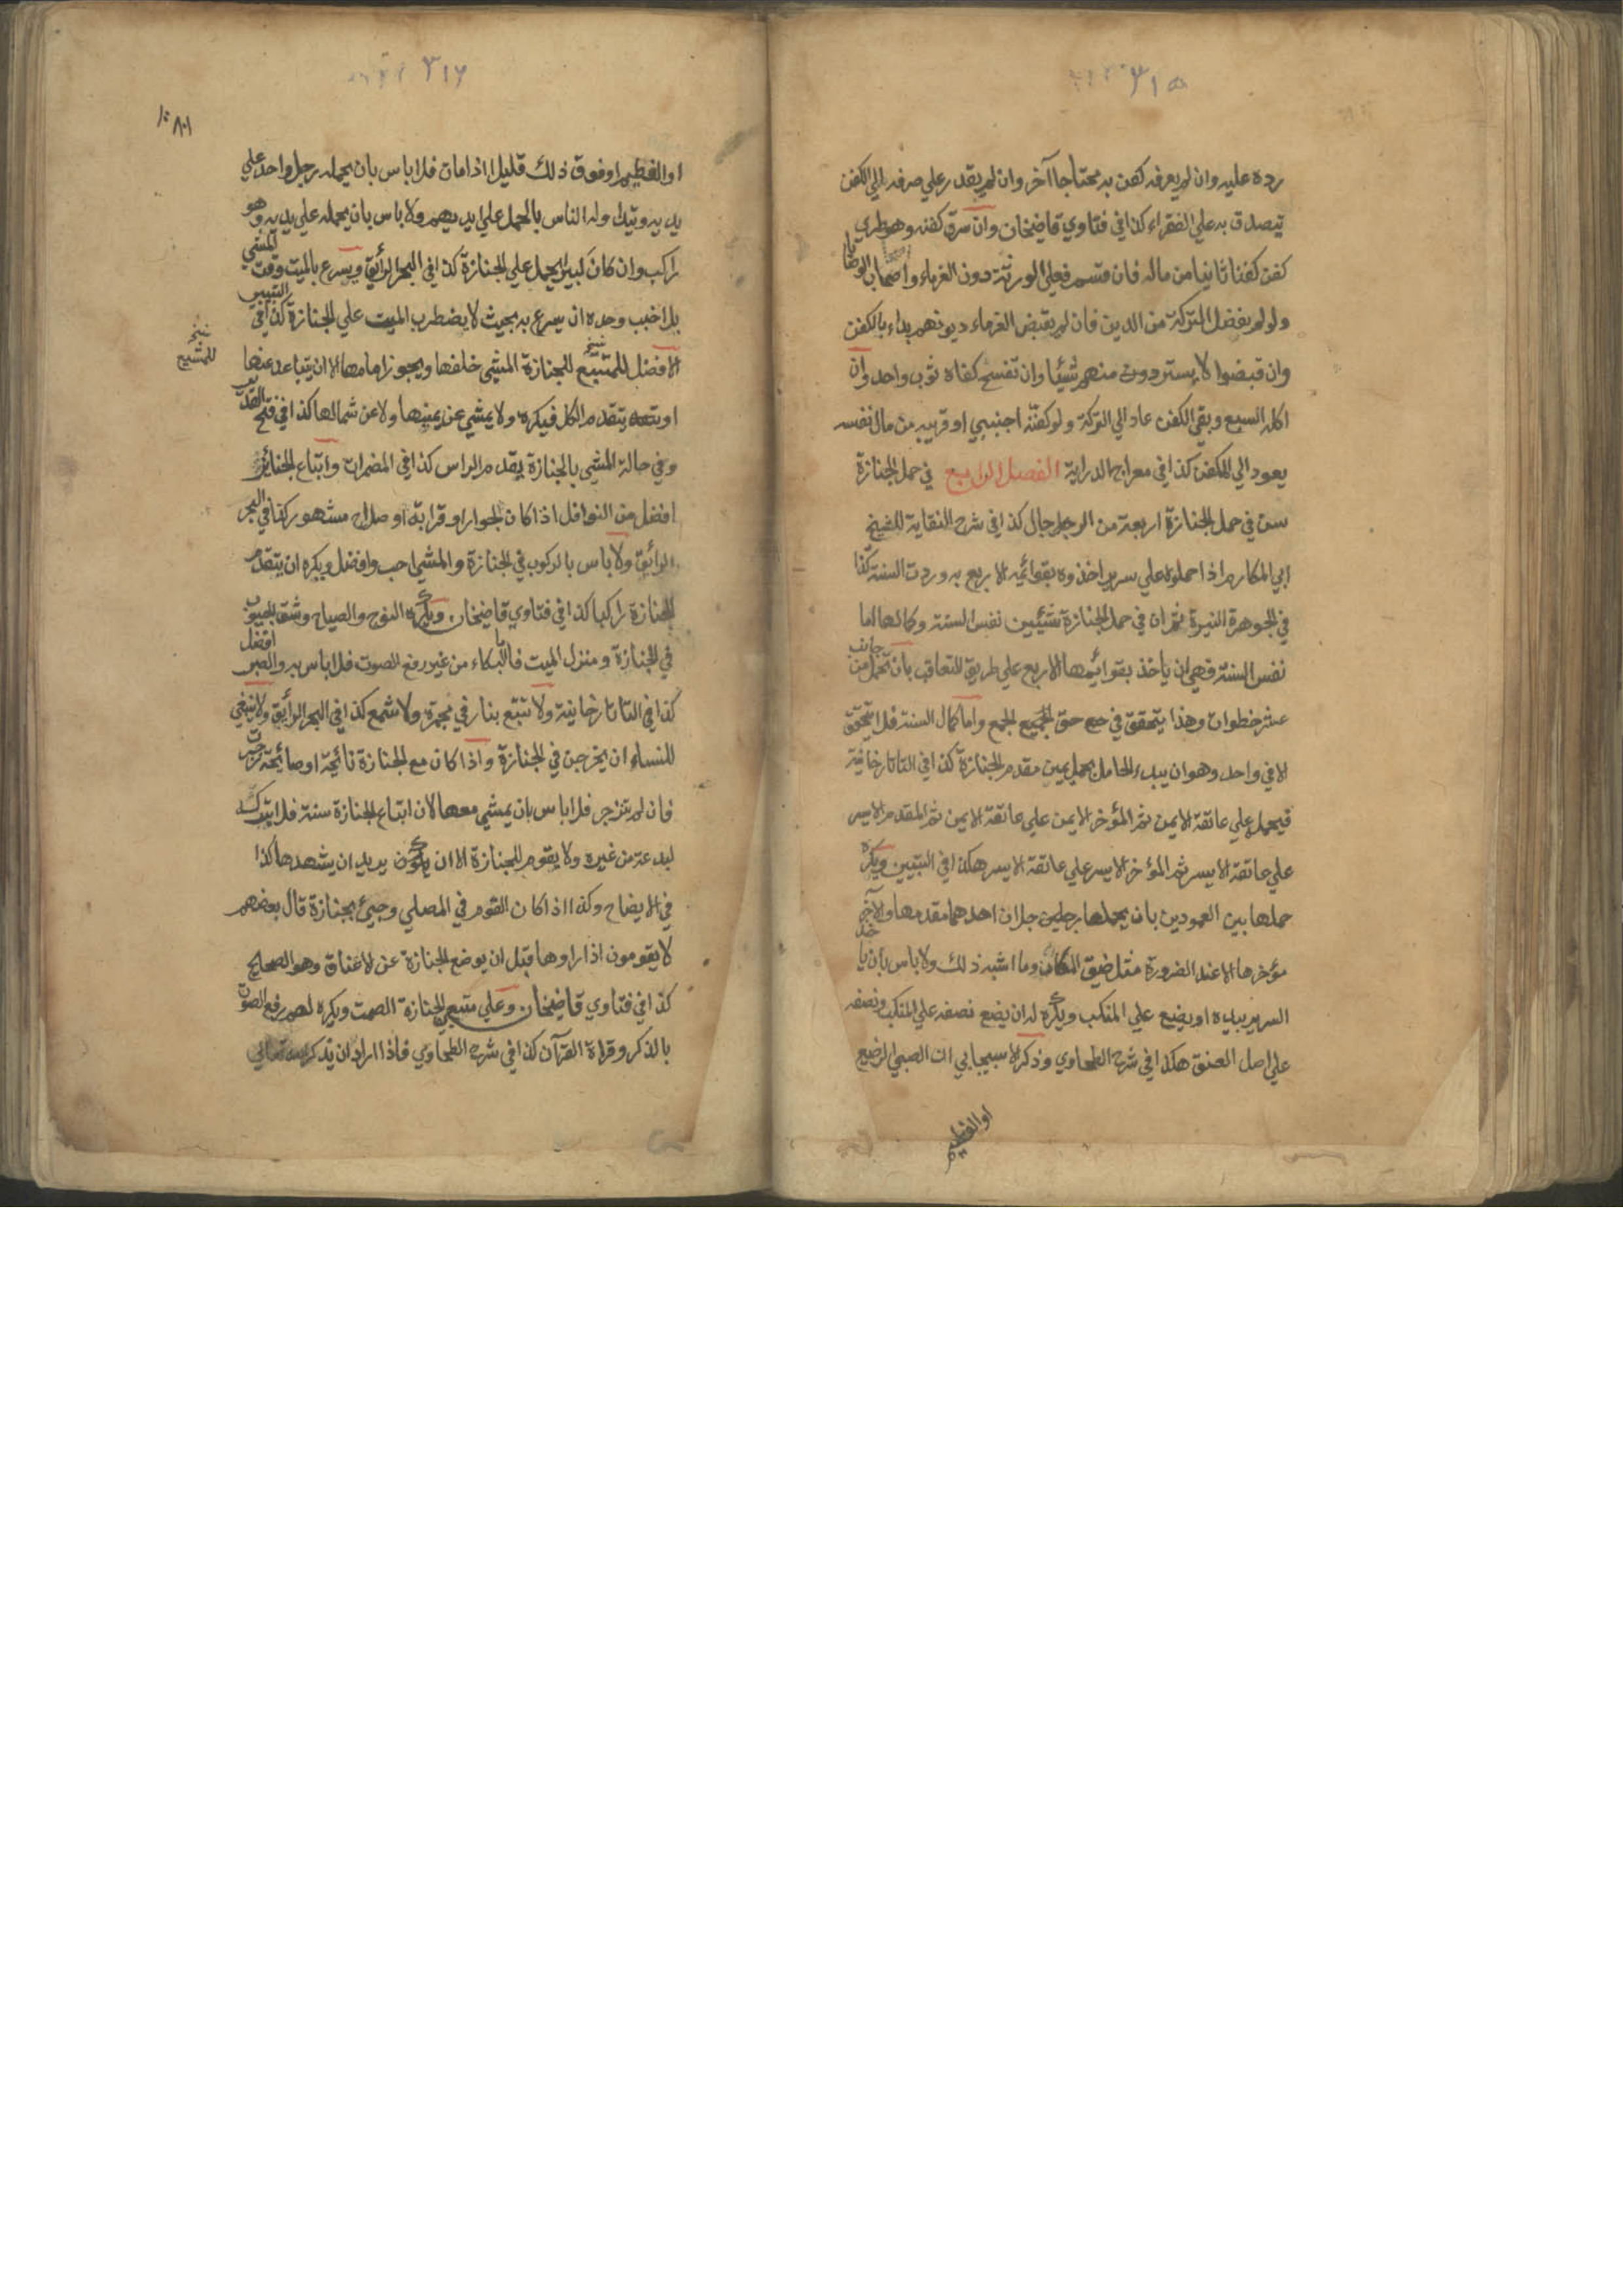 ٣١٥
رده عليه وان لم يعرفه كفن به محتاجا آخر وان لم يقدر علي صرفه الي الكفن
يتصدق به علي الفقراء كذا في فتاوي قاضيخان وان سرق كفنه وهو طري
كفن كفنا ثانيا من ماله فان قسم فعلي الورثة دون الغرماء واصحاب الوصايا
ولو لم يفضل التركة من الدين فان لم يقبض الغرماء ديونهم بداء بالكفن
وان قبضوا لا يستردون منهم شيئا وان تفسخ كفاه ثوب واحد وان
اكله السبع وبقي الكفن عاد الي التركة ولو كفنه اجنبي او قريبه من مال نفسه
يعود الي المكفن كذا في معراج الدراية الفصل الرابع في حمل الجنازة
سن في حمل الجنازة اربعة من الرجل جال كذا في شرح النقاية للشيخ
ابي المكارم اذا حملوه علي سرير اخذوه بقوائمه الاربع به وردت السنة كذا
في الجوهرة النيرة ثم ان في حمل الجنازة شيئين نفس السنة وكمالها اما
نفس السنة فهي ان ياخذ بقوائمها الاربع علي طريق التعاقب بان تحمل من جانب
عشر خطوات وهذا يتحقق في حق الجميع الجمع واما كمال السنة فلا يتحقق
الا في واحد وهو ان يبدء الحامل بحمل يمين مقدم الجنازة كذا في التاتارخانية
فيحمله علي عاتقه الايمن ثم المؤخر الايمن علي عاتقه الايمن ثم المقدم الايسر
علي عاتقه الايسر ثم المؤخر الايسر علي عاتقه الايسر هكذا في التبيين ويكره
حملها بين العمودين بان يحملها رجلين جلان احدهما مقدمها والآخر
مؤخرها الا عند الضرورة مثل ضيق المكان وما اشبه ذلك ولا باس بان ياخذ
السرير بيده او يضع علي المنكب ويكره له ان يضع نصفه علي المنكب ونصفه
علي اصل العنق هكذا في شرح الطحاوي وذكر الاسبيجابي ان الصبي الرضيع
او الفطيم
٣١٦
او الفطيم او فوق ذلك قليلا اذا مات فلا باس بان يحمله رجل واحد علي
يديه ويتداوله الناس بالحمل علي ايديهم ولا باس بان يحمله علي يديه وهو
راكب وان كان كبيرا يحمل علي الجنازة كذا في البحر الرائق ويسرع بالميت وقت المشي
بلا خبب وحده ان يسرع به بحيث لا يضطرب الميت علي الجنازة كذا في التبيين
الافضل للمتبع للجنازة المشي خلفها ويجوز امامها الا ان يتباعد عنها
نسخ
للمشيع
او يتقدم الكل فيكره ولا يمشي عن يمينها ولا عن شمالها كذا في فتح القدير
وفي حالة المشي بالجنازة يقدم الراس كذا في المضمرات واتباع الجنائز
افضل من النوافل اذا كان لجوار او قرابة او صلاح مشهور كذا في البحر
الرائق ولا باس بالركوب في الجنازة والمشي احب وافضل ويكره ان يتقدم
الجنازة راكبا كذا في فتاوي قاضيخان ويكره النوح والصياح وشق الجيوب
في الجنازة ومنزل الميت فاما البكاء من غير رفع الصوت فلا باس به والصبر افضل
كذا في التاتارخانية ولا تتبع بنار في مجمرة ولا شمع كذا في البحر الرائق ولا ينبغي
للنساء ان يخرجن في الجنازة واذا كان مع الجنازة نائحة او صائحة زجرت
فان لم تنزجر فلا باس بان يمشي معها لان اتباع الجنازة سنة فلا يتركه
لبدعة من غيره ولا يقوم للجنازة الا ان يكون يريد ان يشهدها كذا
في الايضاح وكذا اذا كان القوم في المصلي وجيئ بجنازة قال بعضهم
لا يقومون اذا راوها قبل ان يوضع الجنازة عن لاعناق وهو الصحيح
كذا في فتاوي قاضيخان وعلي متبعي الجنازة الصمت ويكره لهم رفع الصوت
بالذكر وقراءة القرآن كذا في شرح الطحاوي فاذا اراد ان يذكر الله تعالي